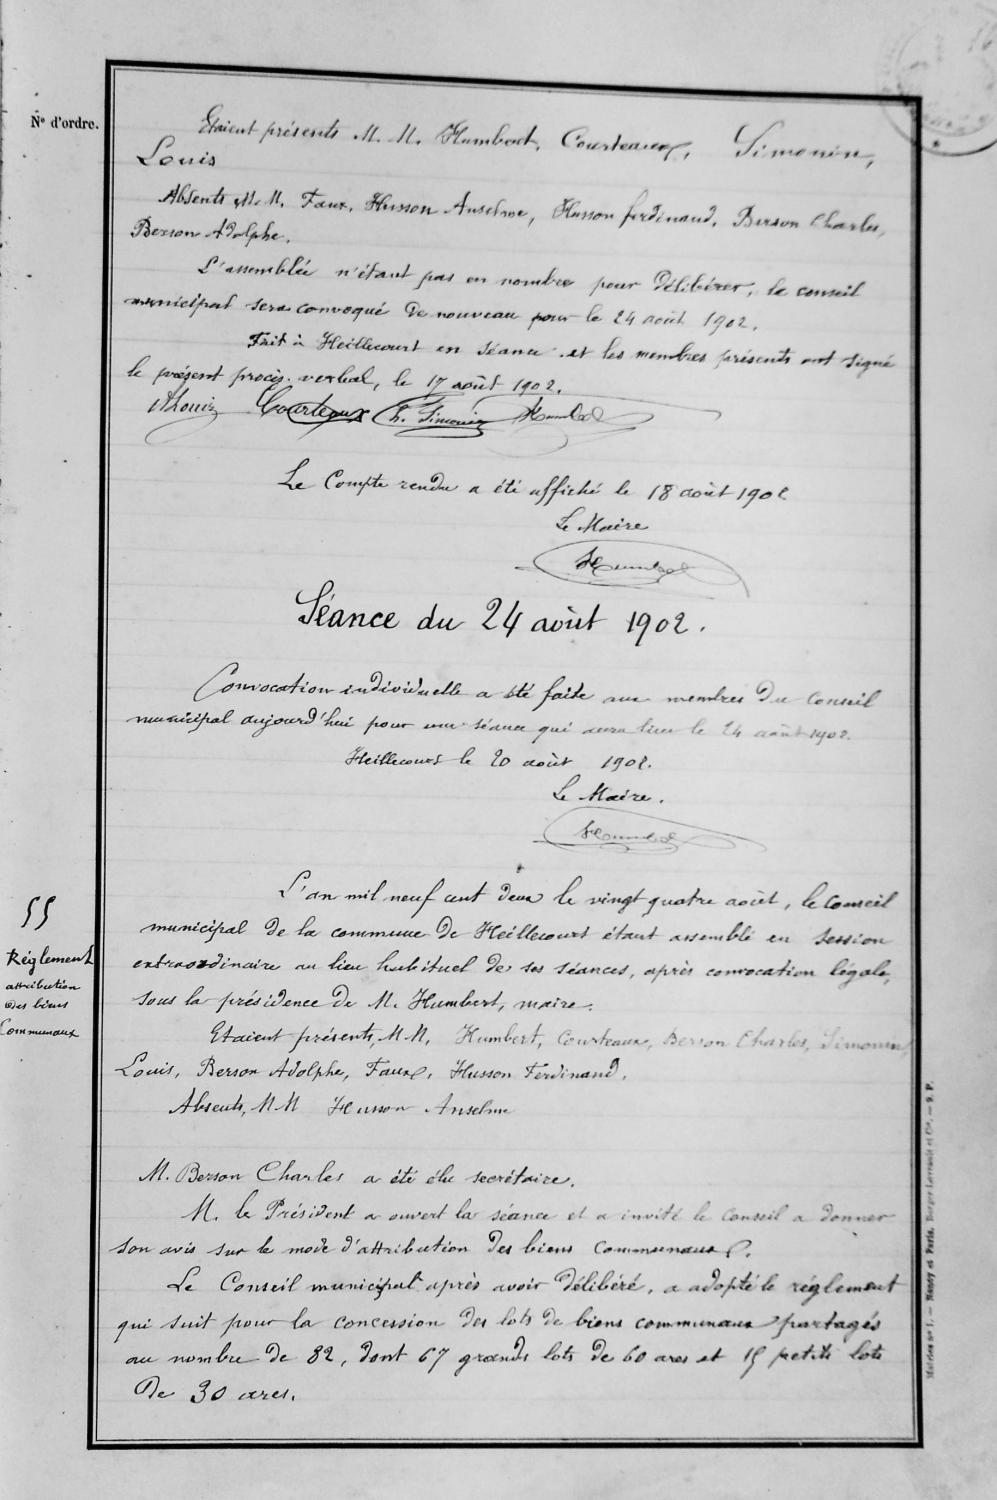 Nos d'ordre.
Etaient présents M. M. Humbert, Courteaux, Simonin,
Louis
Absents M.M. Faux, Husson Anselme, Husson ferdinand, Berson Charles,
Berson Adolphe.
L'assemblée n'étant pas en nombre pour délibérer, le conseil
municipal sera convoqué de nouveau pour le 24 août 1902.
Fait à Heillecourt en séance et les membres présents ont signé
le présent procès-verbal, le 17 août 1902.
Louis Courteaux L. Simonin Humbert
Le Compte rendu a été affiché le 18 août 1902
Le Maire
Humbert
Séance du 24 août 1902.
Convocation individuelle a été faite aux membres du Conseil
municipal aujourd'hui pour une séance qui aura lieu le 24 août 1902.
Heillecourt le 20 août 1902.
Le Maire.
Humbert
55
Réglement
attribution
des biens
Communaux
L'an mil neuf cent deux le vingt quatre août, le Conseil
municipal de la commune de Heillecourt étant assemblé en session
extraordinaire au lieu habituel de ses séances, après convocation légale,
sous la présidence de M. Humbert, maire.
Etaient présents, MM, Humbert, Courteaux, Berson Charles, Simonin,
Louis, Berson Adolphe, Faux, Husson Ferdinand.
Absents, MM Husson Anselme
M. Berson Charles a été élu secrétaire.
M. le Président a ouvert la séance et a invité le Conseil a donner
son avis sur le mode d'attribution des biens communaux.
Le Conseil municipal après avoir délibéré, a adopté le réglement
qui suit pour la concession des lots de biens communaux partagés
au nombre de 82, dont 67 grands lots de 60 ares et 15 petits lots
de 30 ares.
Nancy et Paris, Berger-Levrault et Cie. — S. P.